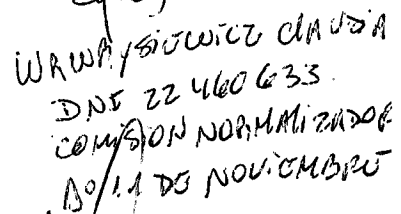 WAWRYSIEWICZ CLAUDIA
DNI 22 460 633
COMISION NORMALIZADOR
Bº 11 DE NOVIEMBRE